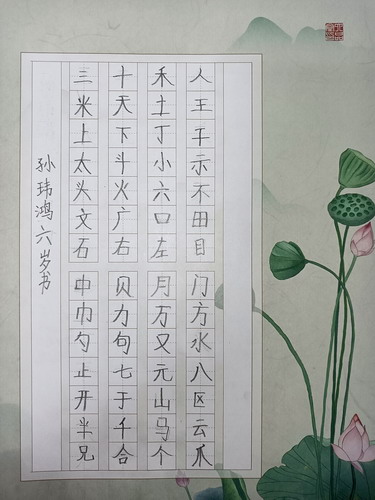 人王干示不田目门方水八区云爪
禾土丁小六口左月万又元山马个
十天下斗火广右贝力句七于千合
三米上太头文石中巾勺止开半兄
孙玮鸿六岁书